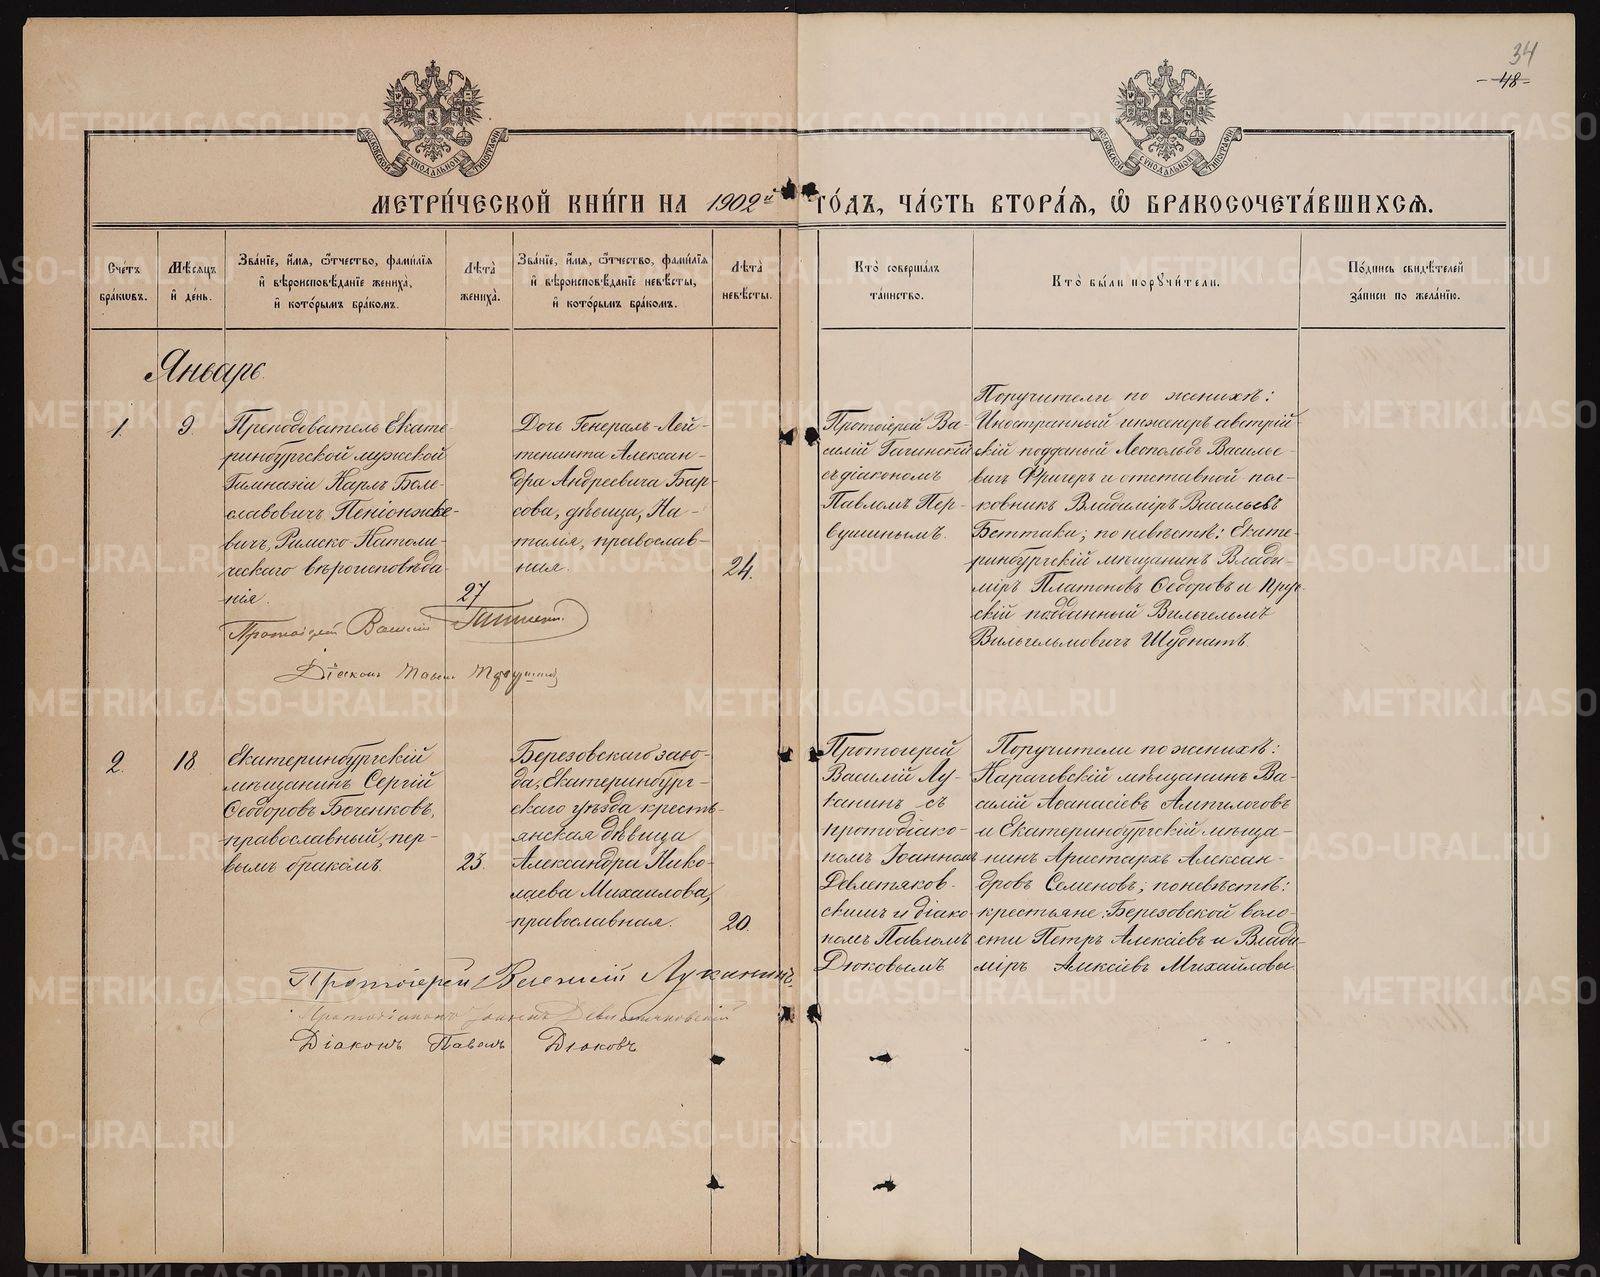 34
- 48 -
МЕТРИ́ЧЕСКОЙ КНИ́ГИ НА 1902й ГО́ДЪ, ЧА́СТЬ ВТОРА́Я, Ѽ БРАКОСОЧЕТА́ВШИХСЯ.
МОСКОВСКОЙ СѴНОДАЛЬНОЙ ТИПОГРАФІИ
МОСКОВСКОЙ СѴНОДАЛЬНОЙ ТИПОГРАФІИ
Сче́тъ
бра́кѡвъ.
Мѣ́сяцъ
и́ де́нь.
Зва́нїе, и́мя, ѻ҆́тчество, фами́лїя
и҆ вѣроисповѣ́данїе жениха̀,
и҆ кото́рымъ бра́комъ.
Лѣ́та
жениха̀.
Зва́нїе, и́мя, ѻ҆́тчество, фами́лїя
и҆ вѣроисповѣ́данїе невѣ́сты,
и҆ кото́рымъ бра́комъ.
Лѣ́та
невѣ́сты.
Кто̀ соверша́лъ
та́инство.
Кто̀ бы́ли порꙋчи́тели.
По́дпись свидѣ́телей
за́писи по жела́нїю.
Январь.
1.
9.
Преподаватель Екате-
ринбургской мужской
Гимназіи Карлъ Боле-
славовичъ Пеніонжке-
вичъ, Римско-Католи-
ческаго вѣроисповѣда-
нія.
27
Дочь Генералъ-Лей-
тенанта Алексан-
дра Андреевича Бар-
сова, дѣвица, На-
талія, православ-
ная.
24.
Протоіерей Ва-
силій Гагинскій
съ діакономъ
Павломъ Пер-
вушинымъ.
Поручители по женихѣ:
Иностранный инженеръ австрій-
скій подданый Леопольдъ Василье-
вичъ Фригеръ и отставной пол-
ковникъ Владиміръ Васильевъ
Беттаки; по невѣстѣ: Екате-
ринбургскій мѣщанинъ Влади-
міръ Платоновъ Ѳедоровъ и Прус-
скій подданный Вильгельмъ
Вильгельмовичъ Шуднатъ.
Протоіерей Василій
Діаконъ Павелъ
2.
18
Екатеринбургскій
мѣщанинъ Сергій
Ѳедоровъ Боченковъ,
православный, пер-
вымъ бракомъ.
23.
Березовскаго заво-
да, Екатеринбург-
скаго уѣзда кресть-
янская дѣвица
Александра Нико-
лаева Михаилова,
православная.
20.
Протоіерей
Василій Лу-
канинъ съ
протодіако-
номъ Іоанномъ
Девлетяков-
скимъ и діако-
номъ Павломъ
Дюковымъ
Поручители по женихѣ:
Карачевскій мѣщанинъ Ва-
силій Аѳанасіевъ Ампилоговъ
и Екатеринбургскій мѣща-
нинъ Аристархъ Алексан-
дровъ Семеновъ; по невѣстѣ:
крестьяне: Березовской воло-
сти Петръ Алексіевъ и Влади-
міръ Алексіевъ Михайловы.
Протоіерей Василій Луканинъ.
Протодіаконъ Іоаннъ Девлетяковскій
Діаконъ Павелъ Дюковъ
METRIKI.GASO-URAL.RU